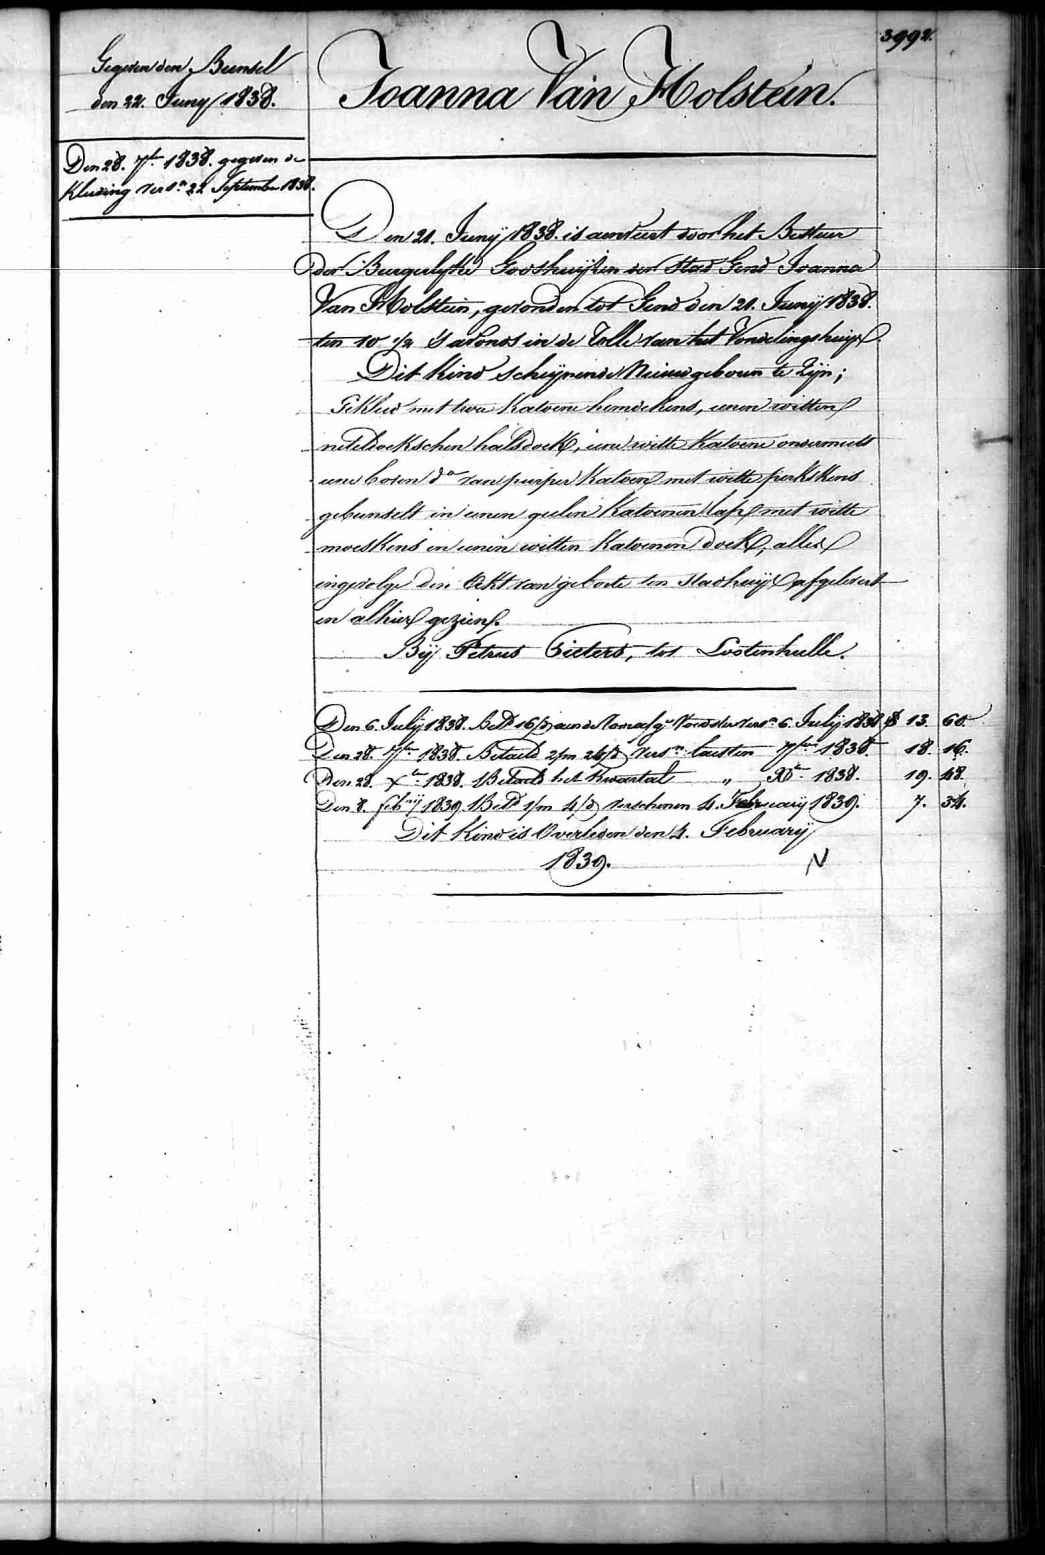 3992.
Gegeven den Bunsel
den 22. Juny 1838.
Den 28. 7br 1838. gegeven de
Kleeding vers.n 22 September 1838.
Joanna Van Holstein.
Den 21. Junij 1838. is aenveert door het Bestuer
der Burgerlijke Godshuijsen der Stad Gend Joanna
Van Holstein, gevonden tot Gend den 21. Junij 1838.
ten 10 1/2 's avonds in de Rolle van het Vondelingshuijs.
Dit Kind scheijnende Nieuwgeboren te Zijn;
Gekleed met twee Katoene hemdekens, eenen witten
neteldoekschen halsdoek, eene witte Katoene ondermuts
eene boven do van purper Katoen met witte perkskens
gebunselt in eenen geelen Katoenen lap met witte
moeskens en eenen witten Katoenen doek, alles
ingevolge den Akt van geboorte ten Stadhuijs afgelevert
en alhier gezien.
Bij Petrus Pieters, tot Lootenhulle.
Den 6. Julij 1838. Betd 16/d aen de Vondster vers.n 6. Julij 1838 13. 60.
Den 28. 7br 1838. Betaeld 2/m 26/d vers.n laesten 7ber 1838. 18. 16.
Den 28. Xbr 1838. Betaeld het Kwartael „ Xbr 1838. 19. 48.
Den 8. febrij 1839 Betd 1/m 4/d verschenen 4. February 1839. 7. 34.
Dit Kind is Overleden den 4. Februarij
1839.